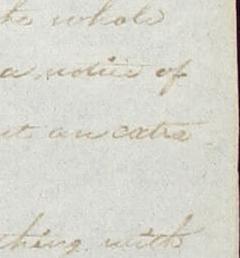 the whole
a notice of
ut an extra
thing with